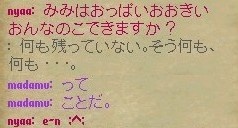 nyaa: みみはおっぱいおおきい
おんなのこできますか?
: 何も残っていない。そう何も、
何も・・・。
madamu: って
madamu: ことだ。
nyaa: e-n :^: